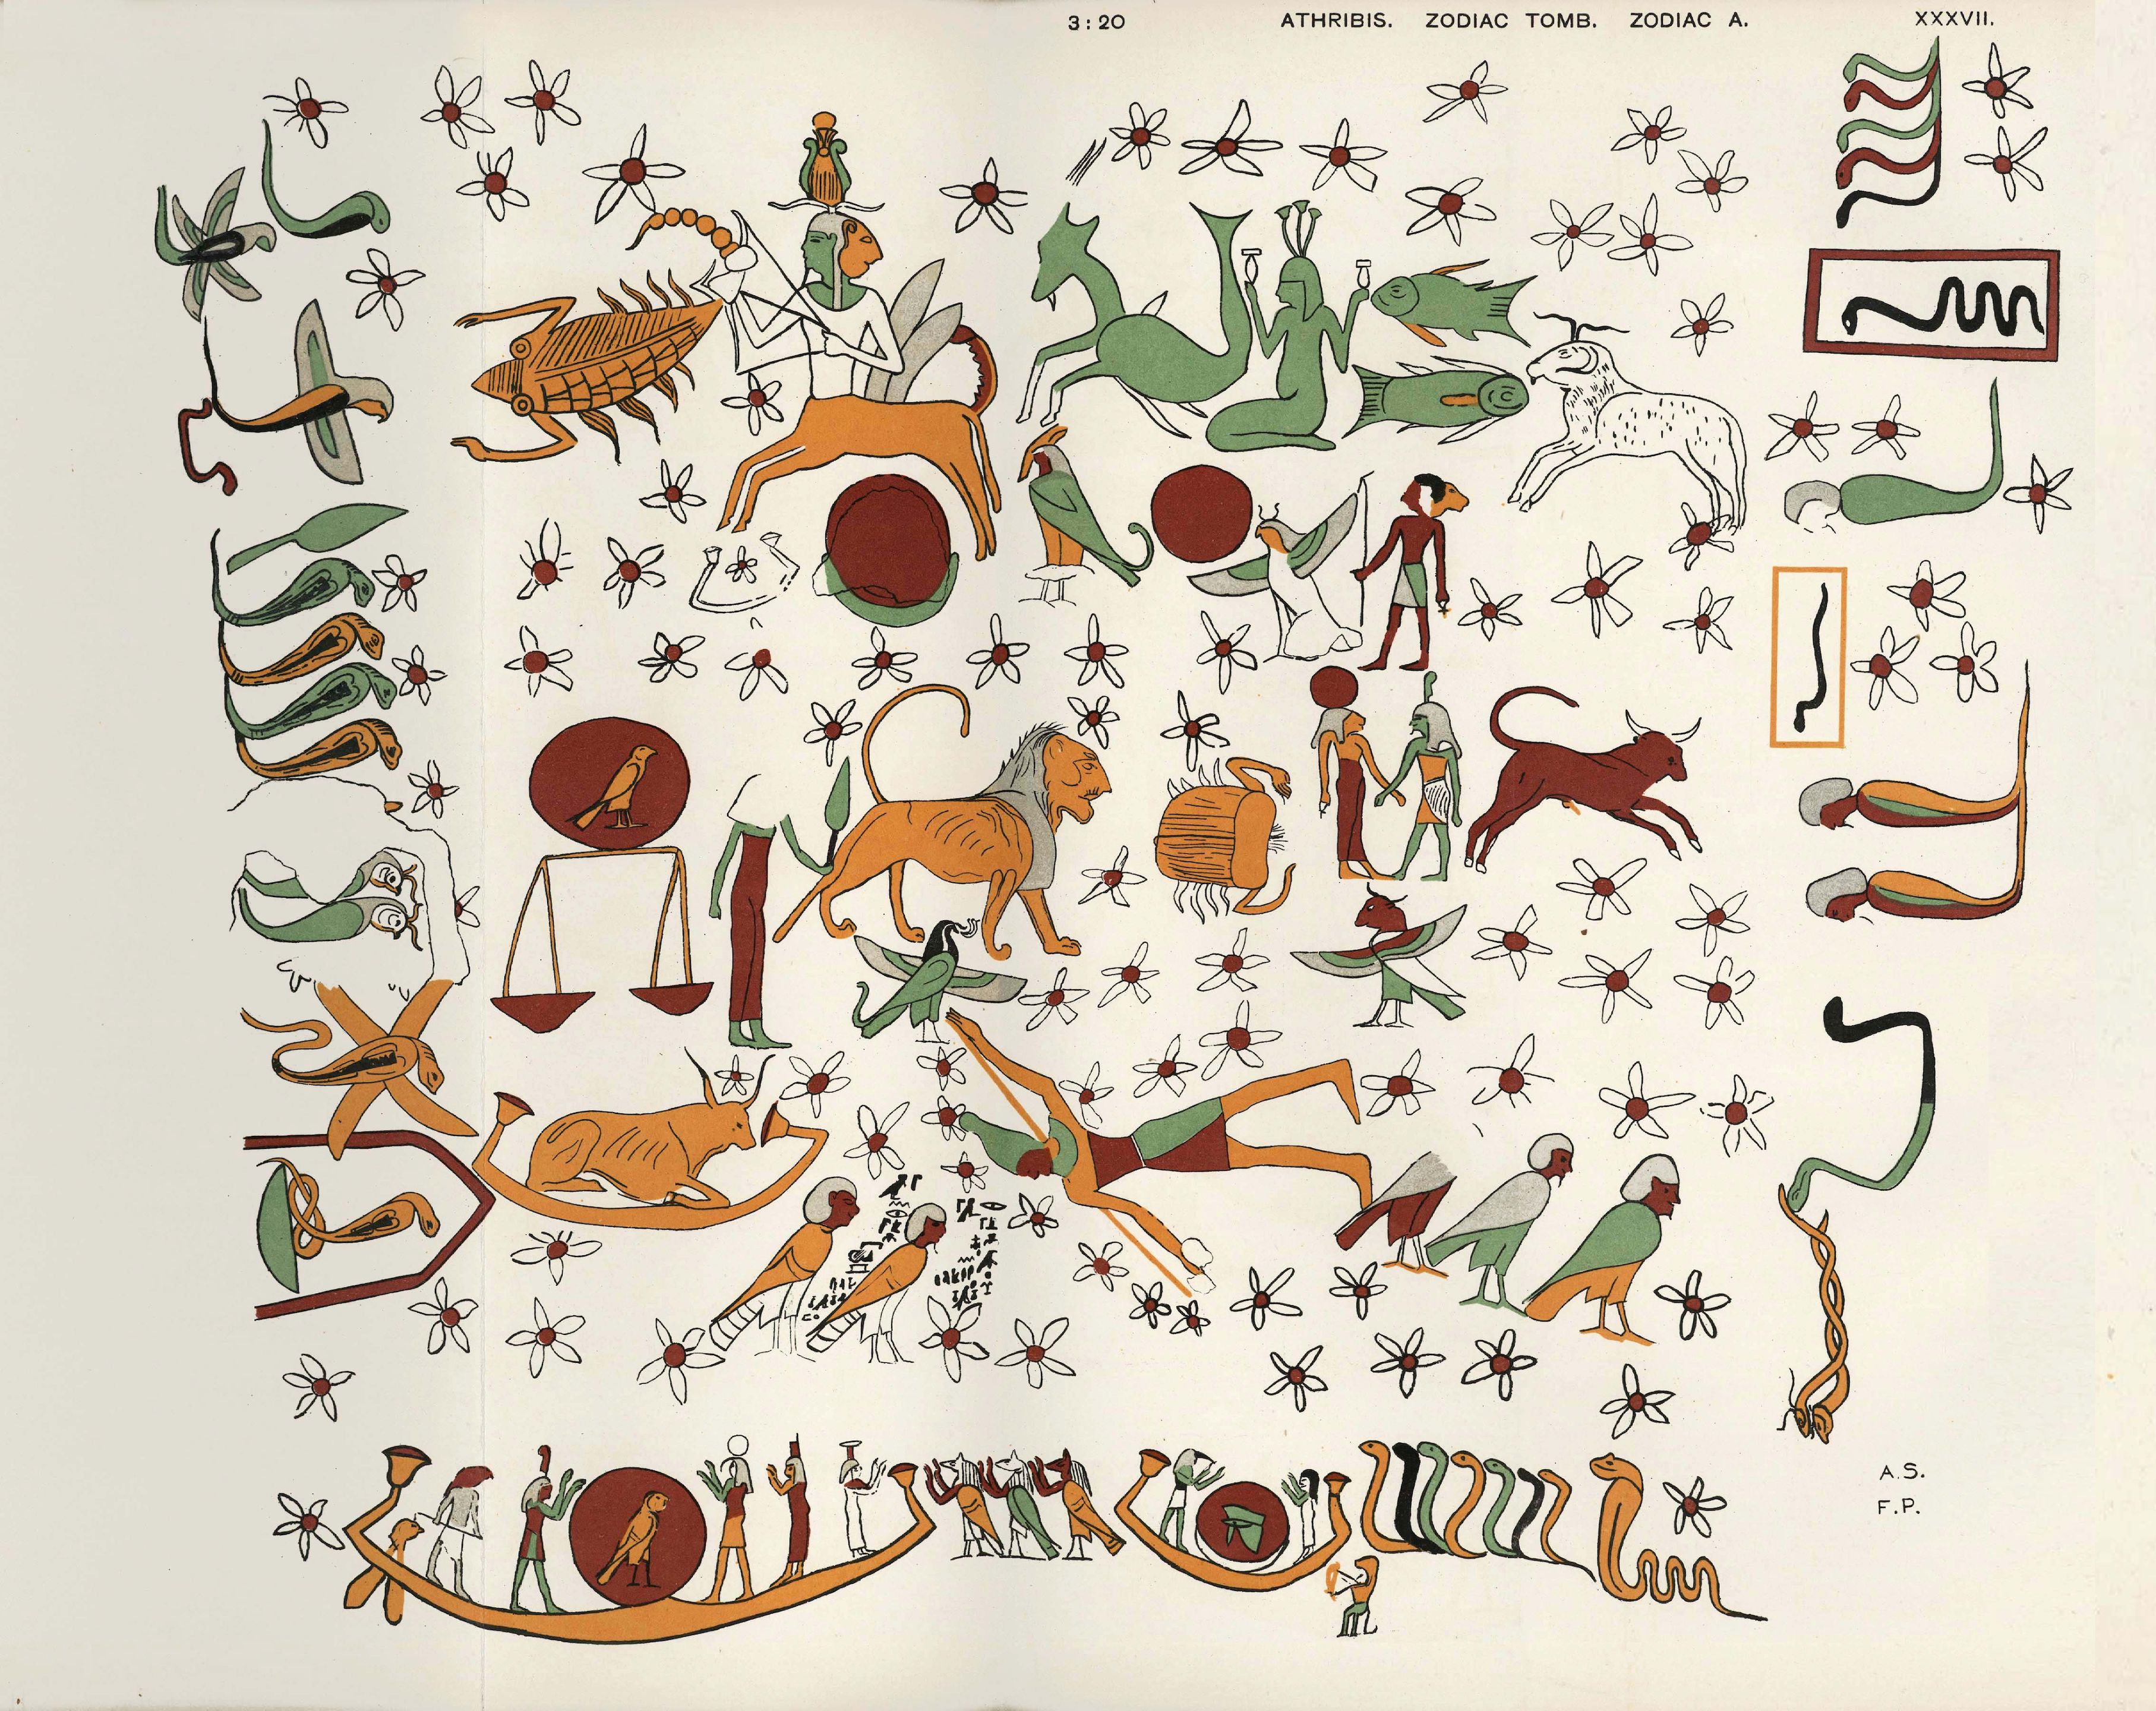 3:20 ATHRIBIS. ZODIAC TOMB. ZODIAC A. XXXVII.
A.S.
F.P.